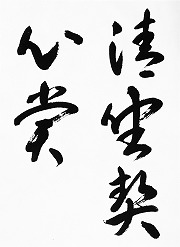 清坐契
心賞